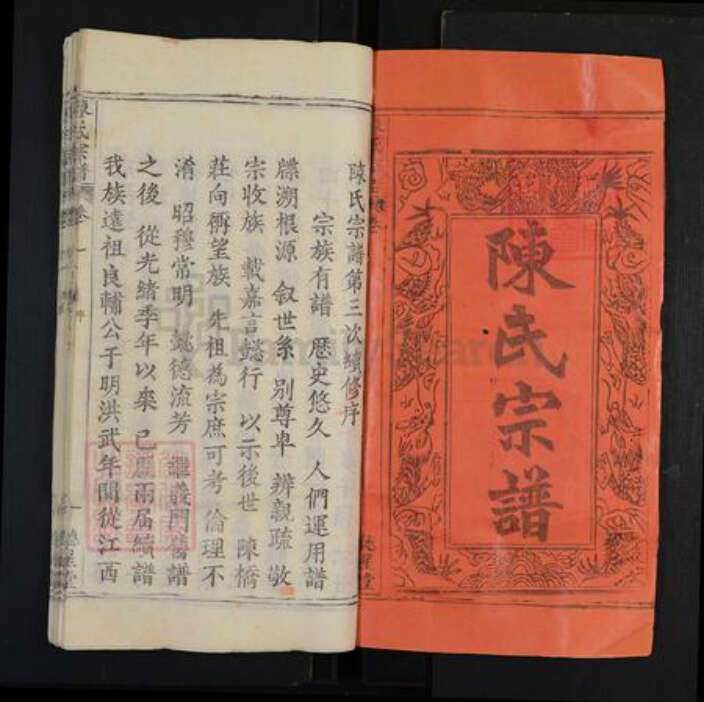 陳氏宗譜
陳氏宗譜第三次續修序
宗族有譜 歷史悠久 人們運用譜
牒溯根源 叙世系 别尊卑 辨親疏 敬
宗收族 載嘉言懿行 以示後世 陳橋
莊向稱望族 先祖為宗庶可考 倫理不
淆 昭穆常明 懿德流芳 繼義門舊譜
之後 從光緒季年以來 已歷兩届續譜
我族遠祖良輔公于明洪武年間從江西
陳氏宗譜 卷一 序